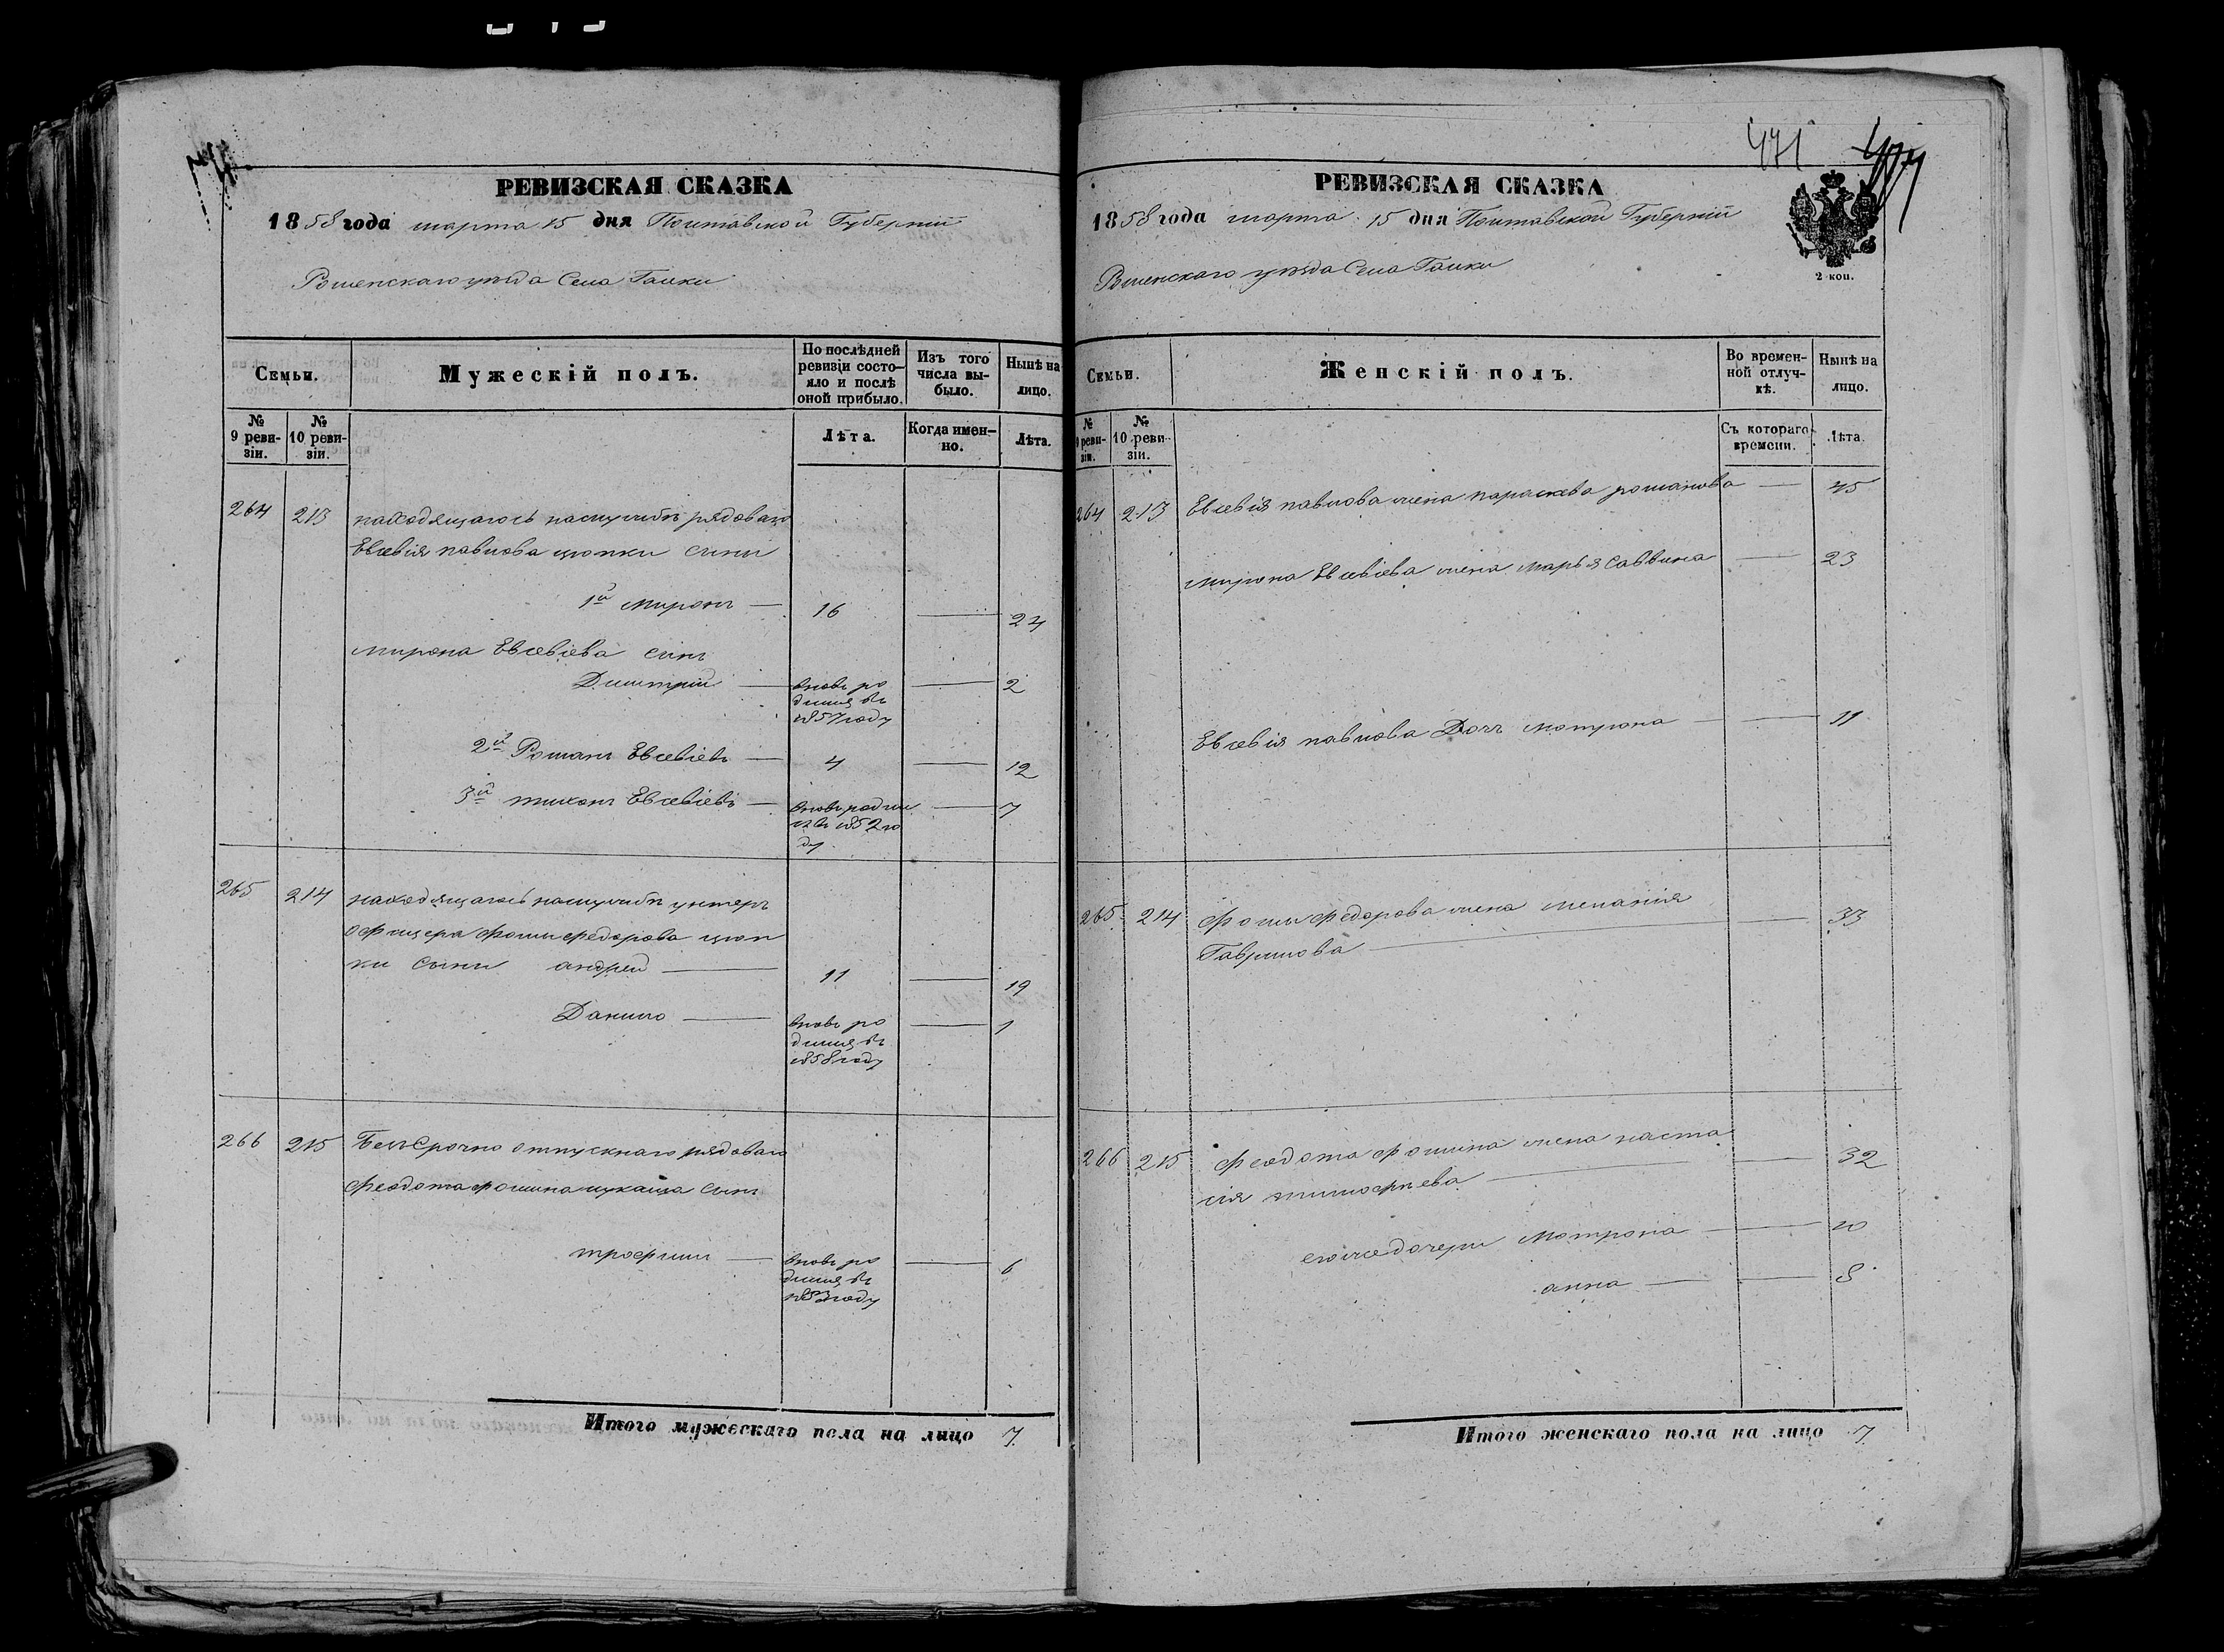 РЕВИЗСКАЯ СКАЗКА
1858 года марта 15 дня Полтавской Губерніи
Роменскаго уѣзда Села Галки
Семьи.
Мужескій полъ.
По послѣдней ревизіи состо-
яло и послѣ оной прибыло.
Изъ того числа вы-
было.
Нынѣ на лицо.
№ 9 реви-
зіи.
№ 10 реви-
зіи.
Лѣта.
Когда имен-
но.
Лѣта.
264 213 находящагось наслужбѣ рядоваго
Евсевія павлова цюпки сыны
1й Миронъ — 16 — 24
мирона Евсевіева сынъ
Димитрій — вновь ро — 2
дился въ
1857 году
2й Романъ Евсевіевъ — 4 — 12
3й тихонъ Евсевіевъ — вновь родил — 7
ся въ 1852 го
ду
265 214 находящагось наслужбѣ унтеръ
офицера Фомы федорова цюп
ки сыны андрей — 11 — 19
Данило — вновь ро — 1
дился въ
1858 году
266 215 Безсрочно отпускнаго рядоваго
Феодота фомина сынъ
трофимъ — вновь ро — 6
дился въ
1853 году
Итого мужескаго пола на лицо 7.
471
РЕВИЗСКАЯ СКАЗКА
1858 года марта 15 дня Полтавской Губерніи
Роменскаго уѣзда Села Галки
2 коп.
Семьи.
Женскій полъ.
Во времен-
ной отлуч-
кѣ.
Нынѣ на лицо.
№ 9 реви-
зіи.
№ 10 реви-
зіи.
Съ котораго времени.
Лѣта.
264 213 Евсевія павлова жена параскева романова — 45
мирона Евсевіева жена Марья Саввина — 23
Евсевія павлова Дочь мотрона — 11
265 214 Фомы Федорова жена меланія — 33
Гаврилова —
266 215 Феодота фомина жена наста — 32
сія тимофѣева —
егожедочери Мотрона — 10
анна — 8
Итого женскаго пола на лицо 7.